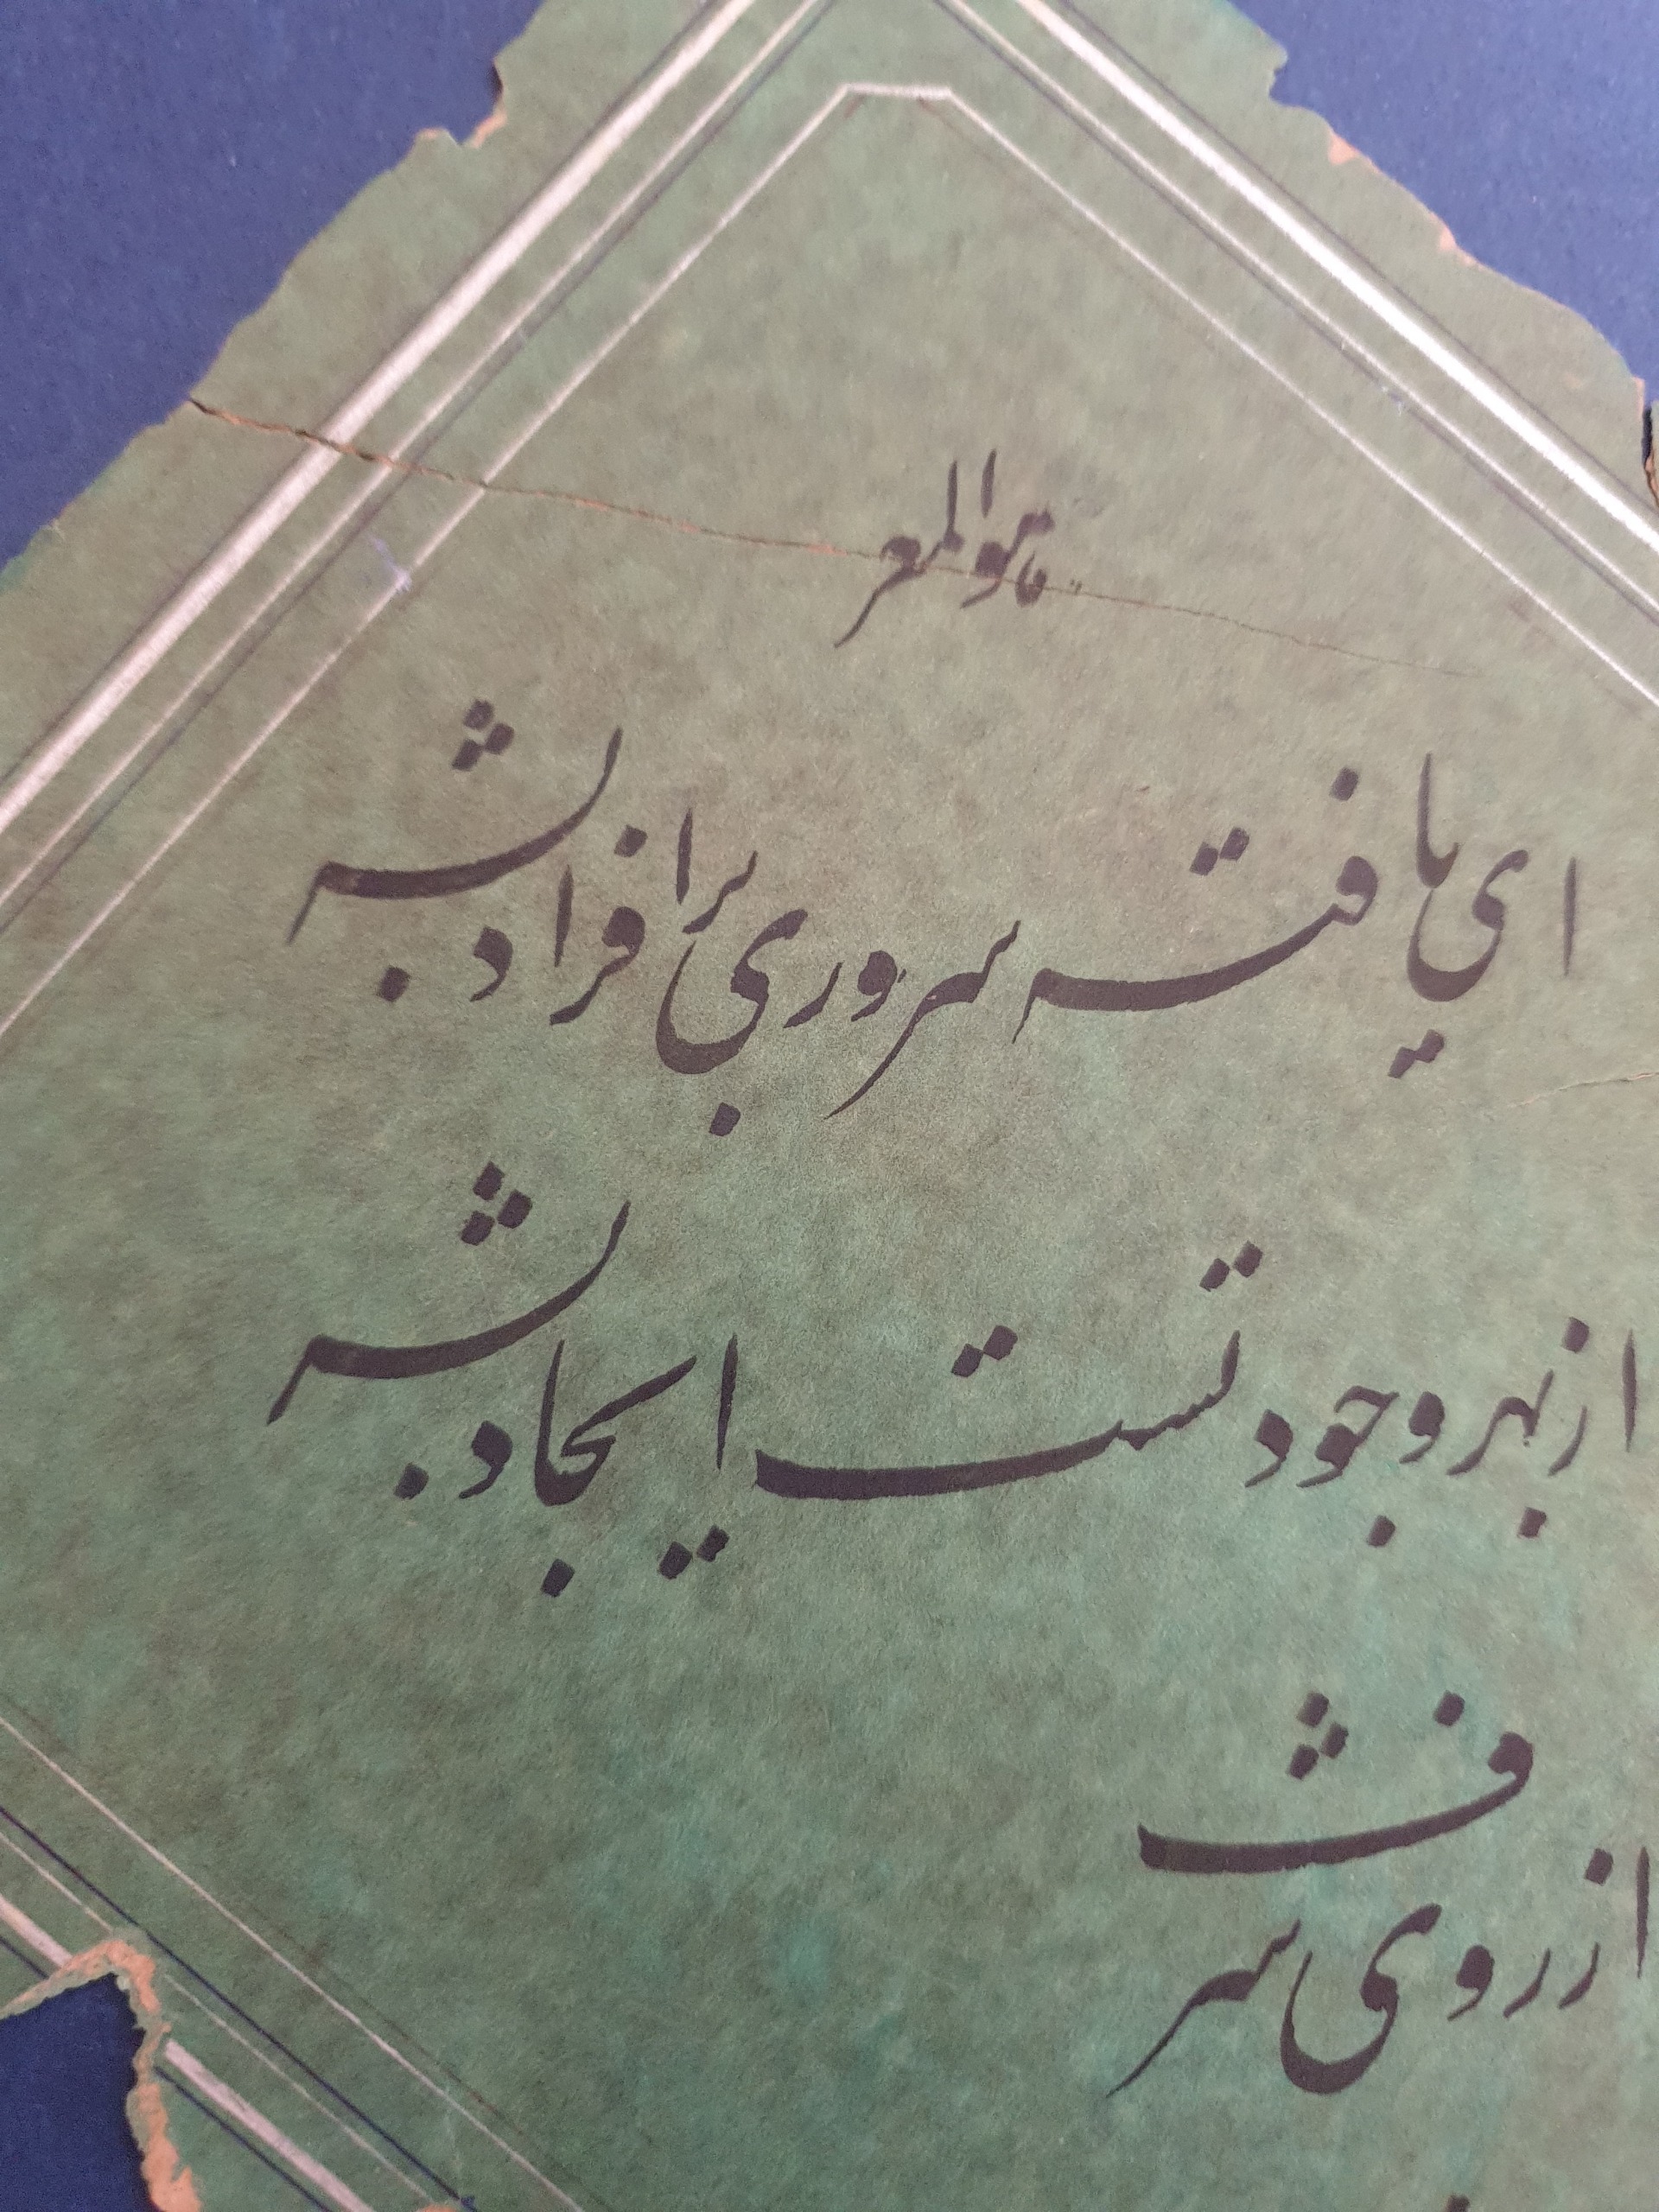 هوالمعز
ای یافته سروری بر افراد بشر
از بهر وجود تست ایجاد بشر
از روی شرف